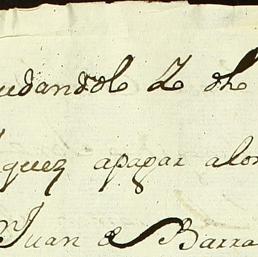 udandole 2 dh
quez apagar alon
Juan de Barra